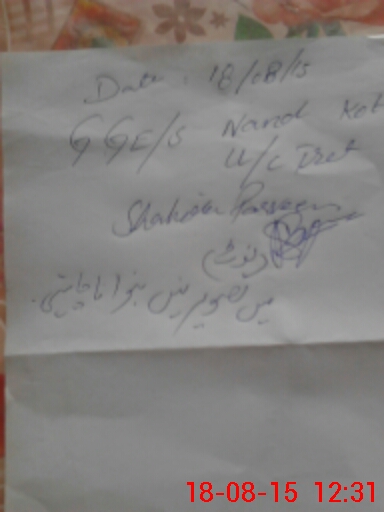 Date: 18/08/15
GGE/S Nand Kot
U/C Dret
Shahida Parveen
(نوٹ)
میں تصویریں بنوانا چاہتی
18-08-15 12:31